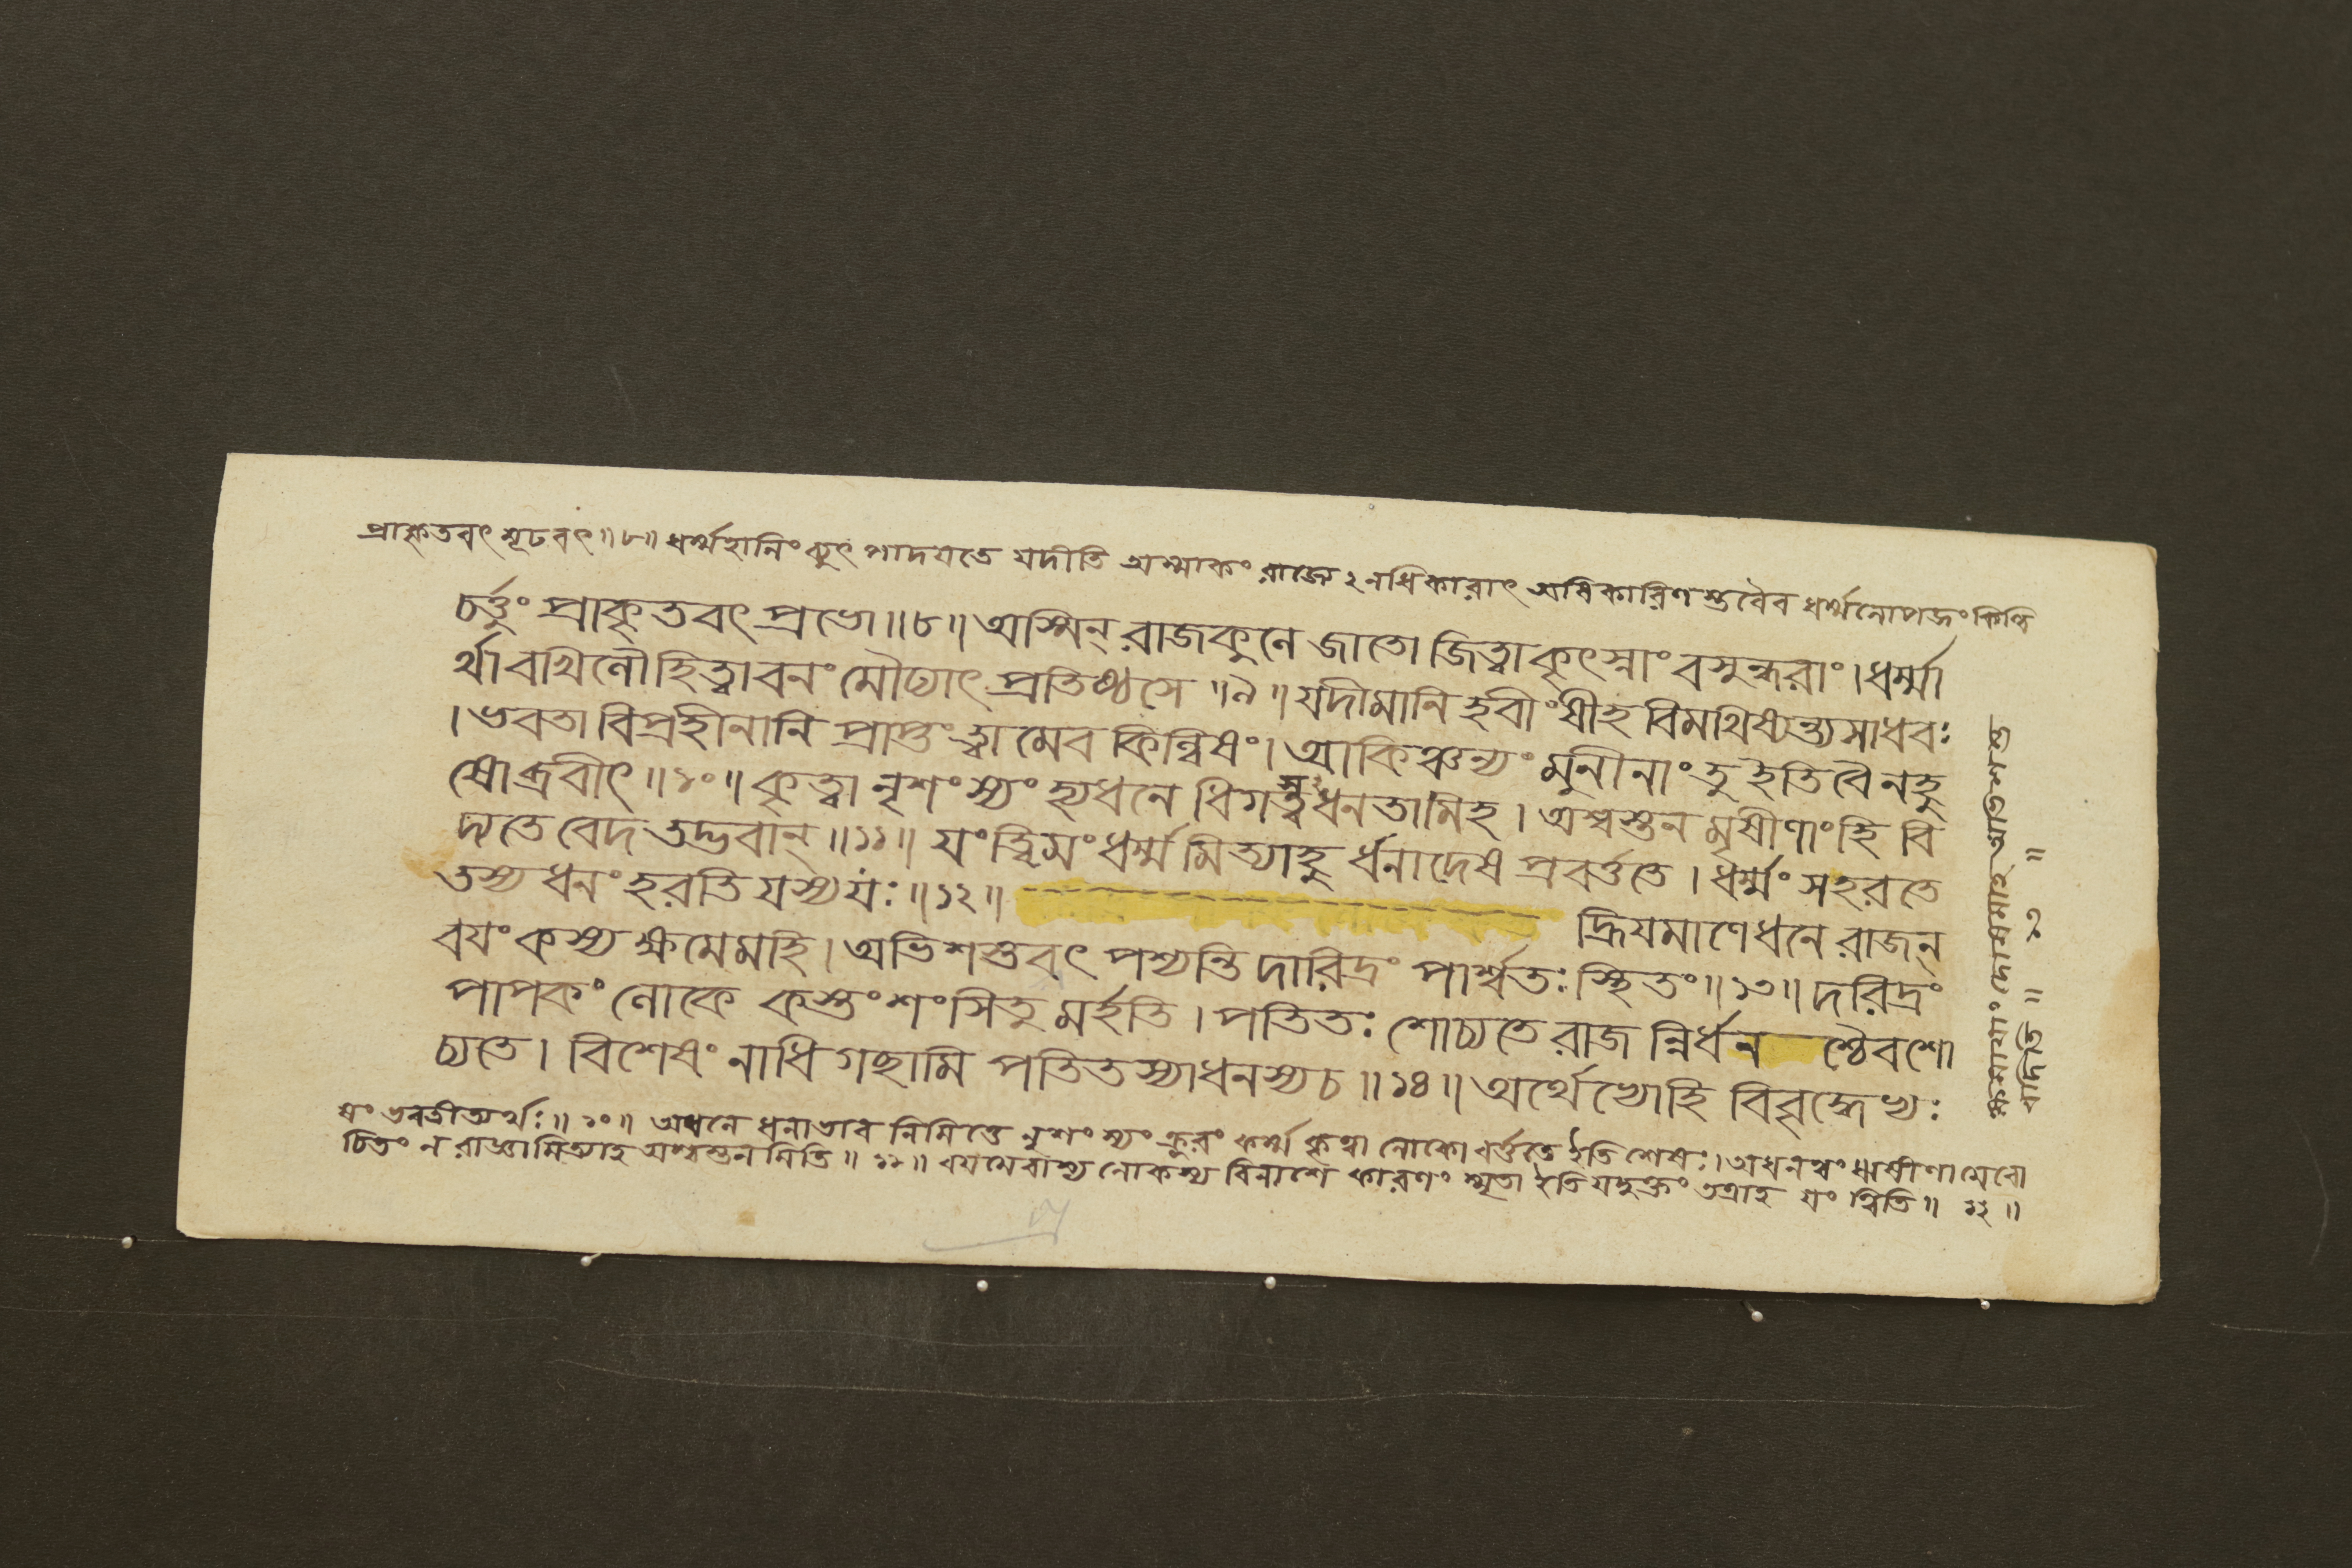 প্রাকৃতবৎ মূঢবৎ॥৮॥ ধর্ম্মহানিং ব্যুৎপাদযতে যদীতি অস্মাকং রাজ্যেঽনধিকারাৎ অধিকারিণস্তবৈব ধর্ম্মলোপজং কিল্বি
চর্ত্তুং প্রাকৃতবৎ প্রভো॥৮॥ অস্মিন্ রাজকুলে জাতো জিত্বা কৃৎস্নাং বসুন্ধরাং। ধর্ম্মা
র্থাবখিলৌ হিত্বা বনং মৌঢ্যাৎ প্রতিষ্ঠসে॥৯॥ যদীমানি হবীংষীহ বিমথিষ্যন্ত্যসাধবঃ
। ভবতা বিপ্রহীনানি প্রাপ্তং ত্বামেব কিল্বিষং। আকিঞ্চন্যং মুনীনাং তু ইতি বৈ নহু
ষোব্রবীৎ॥১০॥ কৃত্বা নৃশংস্যং হ্যধনে ধিগস্ত্বধনতামিহ। অশ্বস্তনমৃষীণাং হি বি
দ্যতে বেদ তদ্ভবান্॥১১॥ যং ত্বিমং ধর্ম্মমিত্যাহুর্ধনাদেষ প্রবর্ত্ততে। ধর্ম্মং সহরতে
তস্য ধনং হরতি যস্য যঃ॥১২॥ দ্ধ্রিযমাণে ধনে রাজন্
বযং কস্য ক্ষমেমহি। অভিশস্তবৎ পশ্যন্তি দারিদ্রং পার্শ্বতঃ স্থিতং॥১৩॥ দরিদ্রং
পাপকং লোকে কস্তং শংসিতুমর্হতি। পতিতঃ শোচ্যতে রাজন্নির্ধন শ্চৈব শো
চ্যতে। বিশেষং নাধিগছামি পতিতস্যাধনস্য চ॥১৪॥ অর্থেভ্যো হি বিবৃদ্ধেভ্যঃ
ষং ভবতীত্যর্থঃ॥১০॥ অধনে ধনাভাব নিমিত্তে নৃশংস্যং ক্রুরং কর্ম্ম কৃত্বা লোকো বর্ত্ততে ইতি শেষঃ। অধনত্বং ঋষীণামেবো
চিতং ন রাজ্ঞামিত্যাহ অশ্বস্তনমিতি॥১১॥ বযমেবাস্য লোকস্য বিনাশে কারণং স্মৃতা ইতি যদুক্তং তত্রাহ যং ত্বিতি॥১২॥
ক্ষমাযাং দোষমাহ অভিশস্ত
বদিতি॥১৩॥